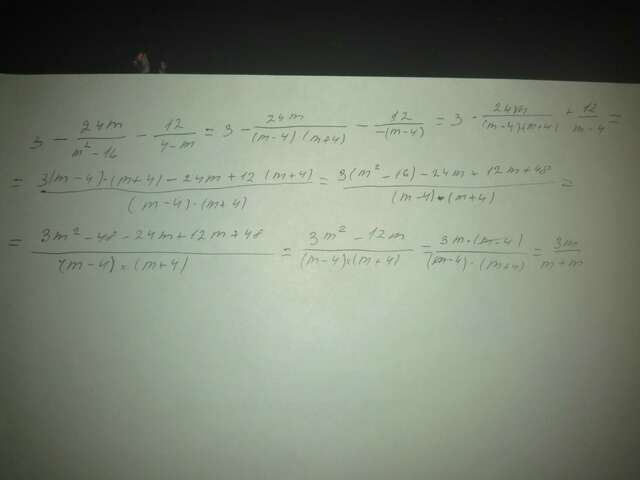 3 - 24m/(m² - 16) - 12/(4 - m) = 3 - 24m/((m-4)·(m+4)) - 12/(-(m-4)) = 3 - 24m/((m-4)·(m+4)) + 12/(m-4) =
= (3(m-4)·(m+4) - 24m + 12(m+4))/((m-4)·(m+4)) = (3(m² - 16) - 24m + 12m + 48)/((m-4)·(m+4)) =
= (3m² - 48 - 24m + 12m + 48)/((m-4)·(m+4)) = (3m² - 12m)/((m-4)·(m+4)) = (3m·(m-4))/((m-4)·(m+4)) = 3m/(m+m)